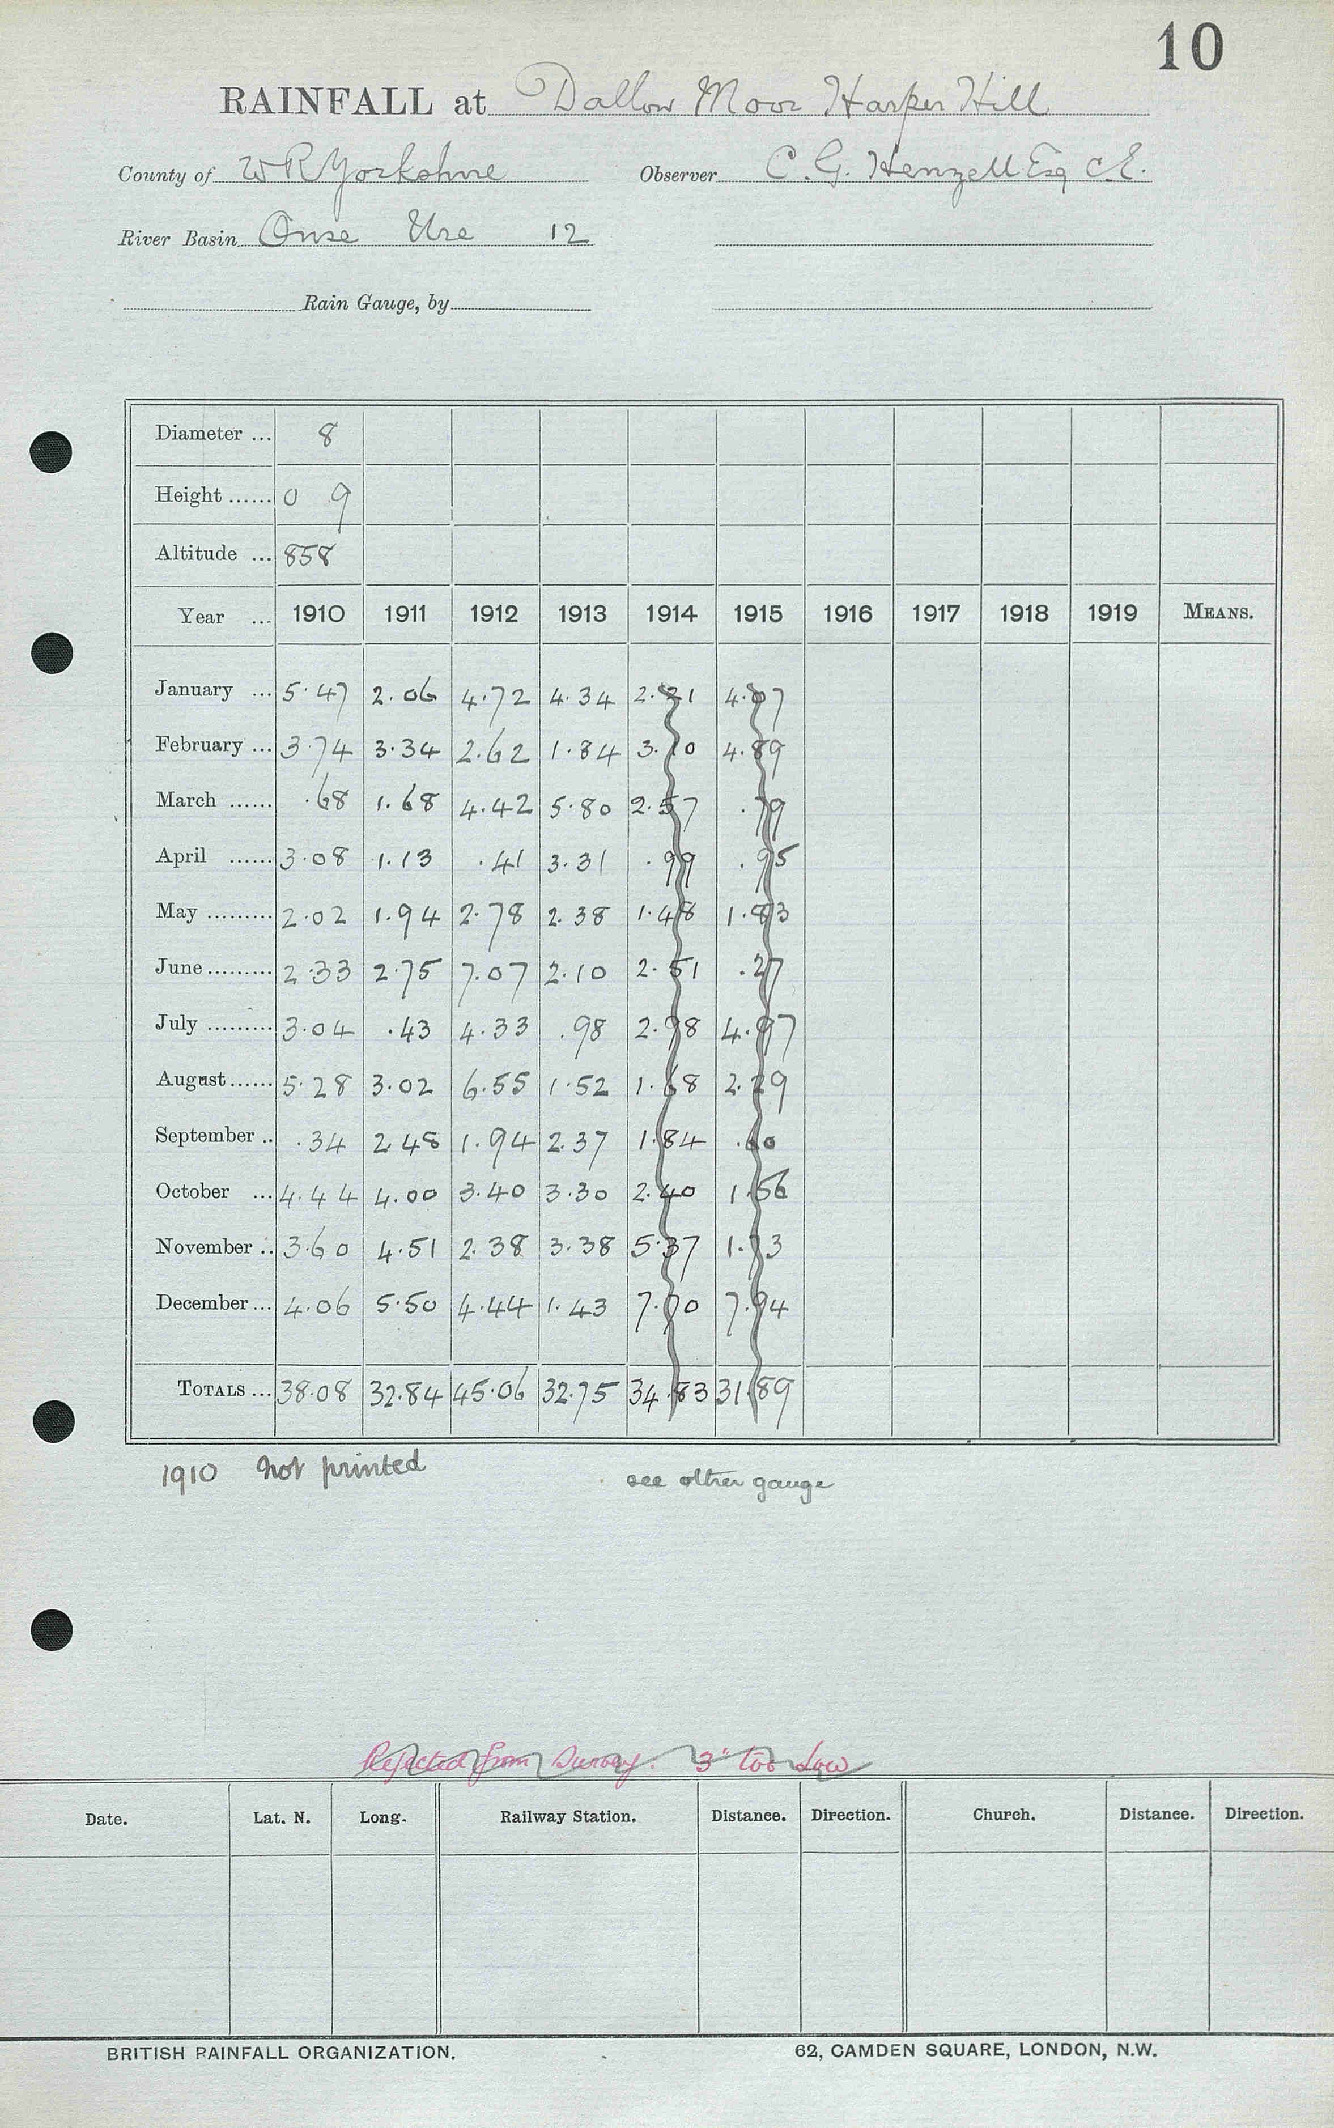 10
RAINFALL at Dallow Moor Harper Hill
County of W R Yorkshire Observer C. G. Henzell Esq C.E.
River Basin Ouse Ure 12
Rain Gauge, by
Diameter ... 8
Height ...... 0 9
Altitude ... 858
Year ... 1910 1911 1912 1913 1914 1915 1916 1917 1918 1919 MEANS.
January ... 5.47 2.06 4.72 4.34 2.21 4.07
February ... 3.74 3.34 2.62 1.84 3.10 4.89
March ...... .68 1.68 4.42 5.80 2.57 .79
April ...... 3.08 1.13 .41 3.31 .99 .95
May ......... 2.02 1.94 2.78 2.38 1.48 1.83
June ......... 2.33 2.75 7.07 2.10 2.51 .27
July ......... 3.04 .43 4.33 .98 2.98 4.97
August ...... 5.28 3.02 6.55 1.52 1.68 2.29
September .. .34 2.48 1.94 2.37 1.84 .60
October ... 4.44 4.00 3.40 3.30 2.40 1.56
November .. 3.60 4.51 2.38 3.38 5.37 1.73
December ... 4.06 5.50 4.44 1.43 7.70 7.94
TOTALS ... 38.08 32.84 45.06 32.75 34.83 31.89
1910 not printed see other gauge
Rejected from Survey. 3" too Low
Date. Lat. N. Long. Railway Station. Distance. Direction. Church. Distance. Direction.
BRITISH RAINFALL ORGANIZATION. 62, CAMDEN SQUARE, LONDON, N.W.